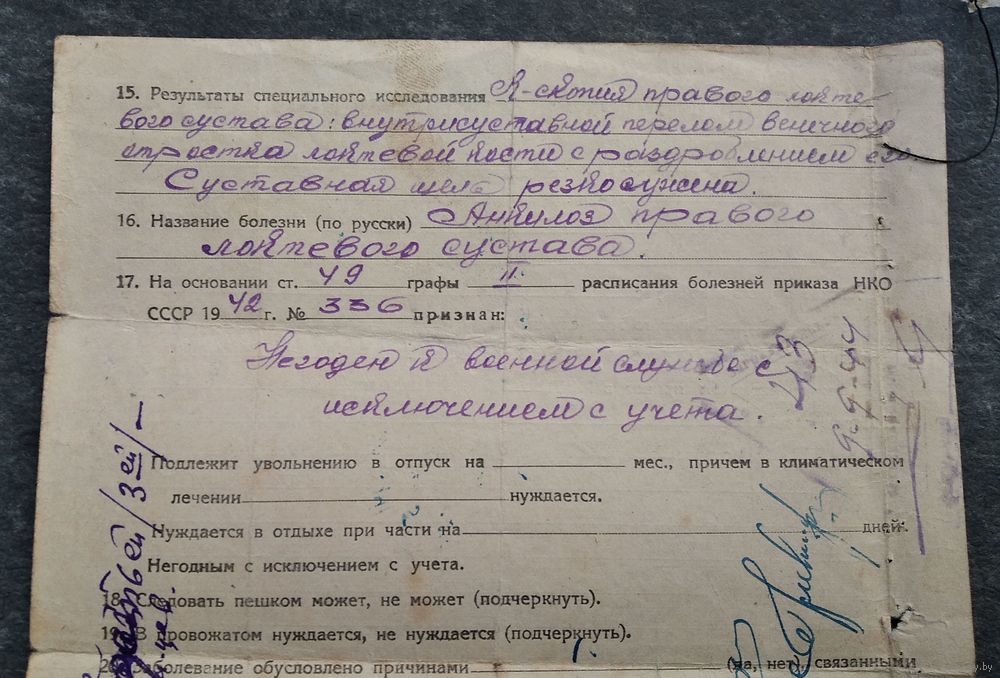 15. Результаты специального исследования R-скопия правого локте-
вого сустава: внутрисуставной перелом венечного
отростка локтевой кости с раздроблением его.
Суставная щель резко сужена.
16. Название болезни (по русски) Анкилоз правого
локтевого сустава.
17. На основании ст. 49 графы II. расписания болезней приказа НКО
СССР 1942 г. № 336 признан:
Негоден к военной службе с
исключением с учета.
Подлежит увольнению в отпуск на мес., причем в климатическом
лечении нуждается.
Нуждается в отдыхе при части на дней.
Негодным с исключением с учета.
18. Следовать пешком может, не может (подчеркнуть).
19. В провожатом нуждается, не нуждается (подчеркнуть).
20. Заболевание обусловлено причинами (да, нет) связанными